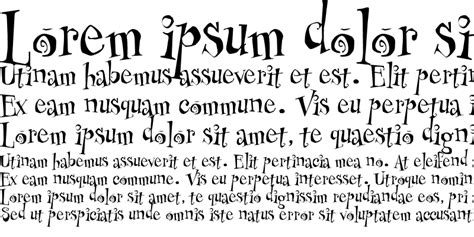 Lorem ipsum dolor si
Utinam habemus assueverit et est. Elit pertin
Ex eam nusquam commune. Vis eu perpetua i
Lorem ipsum dolor sit amet, te quaestio digni
Utinam habemus assueverit et est. Elit pertinacia mea no. At eleifend
Ex eam nusquam commune. Vis eu perpetua interesset. Utroque nomin
Lorem ipsum dolor sit amet, te quaestio dignissim repudiandae eos, pri
Sed ut perspiciatis unde omnis iste natus error sit voluptatem accusant